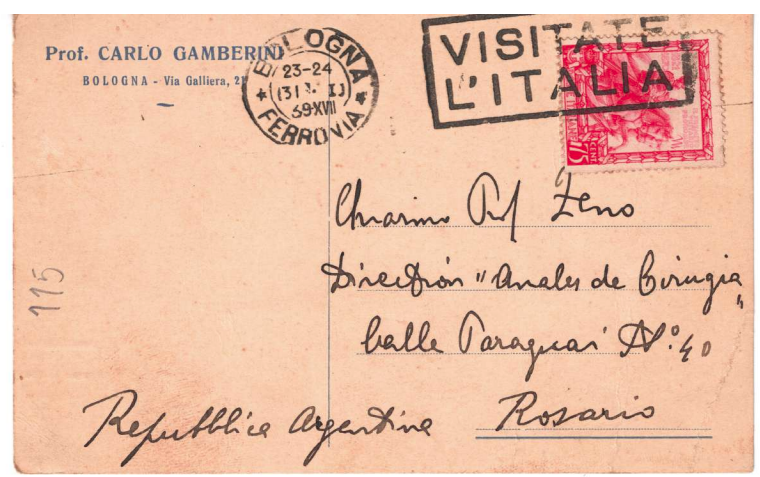 Prof. CARLO GAMBERINI
BOLOGNA - Via Galliera, 21
BOLOGNA
23-24
39XVII
FERROVIA
VISITATE
L'ITALIA
75
Chiarmo Prof Zeno
Direction "Anales de Cirugia"
Calle Paraguai N.º 40
Rosario
Repubblica Argentina
115